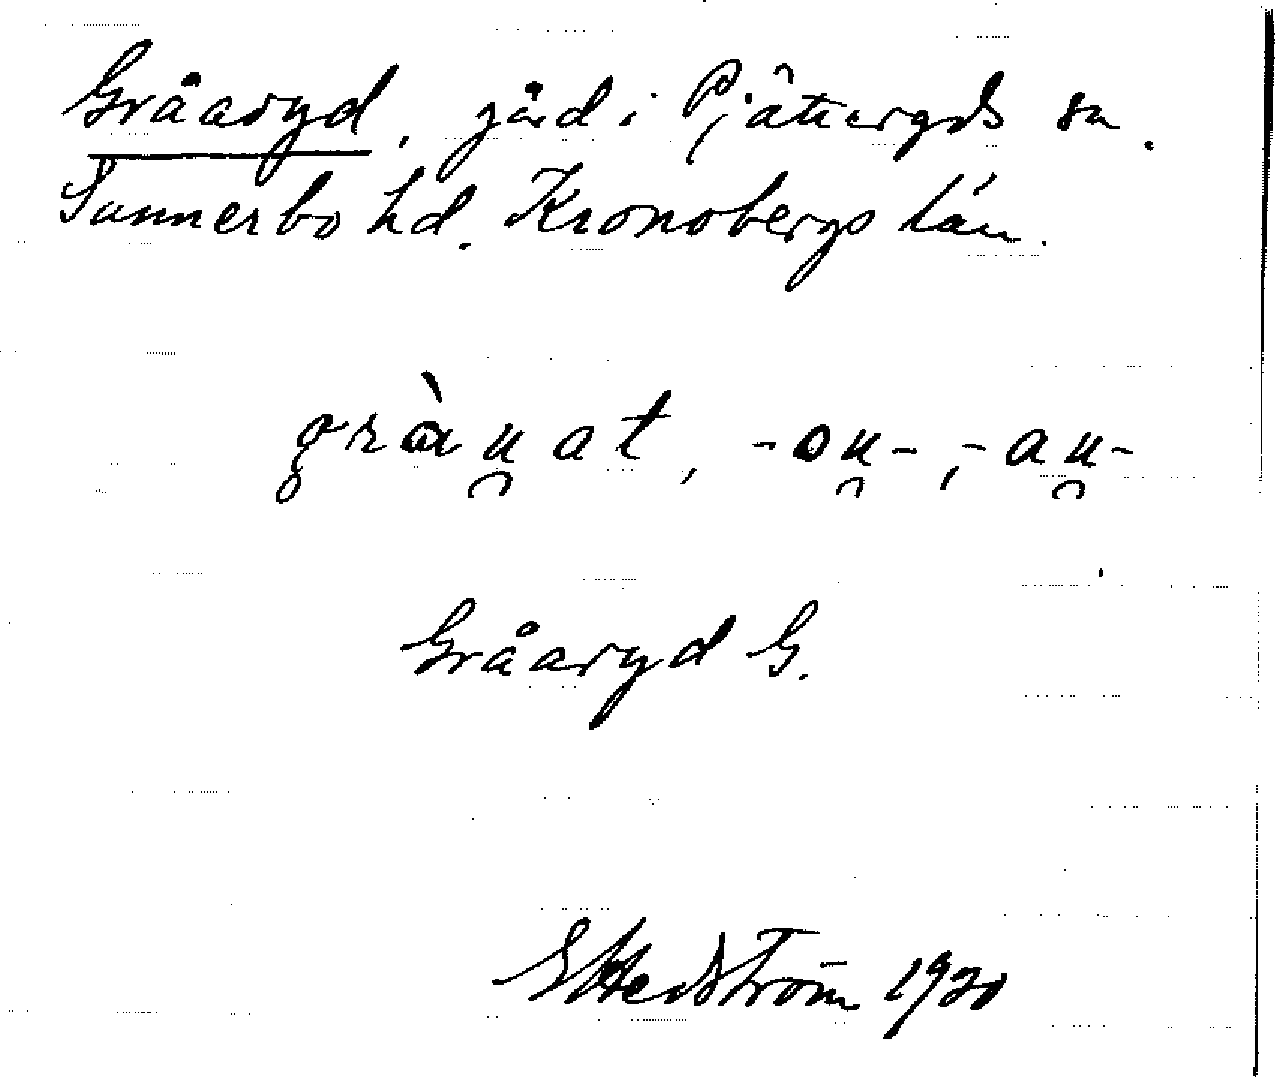 Gråaryd, gård i Pjätteryds sn.
Sunnerbo hd. Kronobergs län.
gràu̯at, -ou̯-, -au̯-
Gråaryd G.
E Hedström 1920